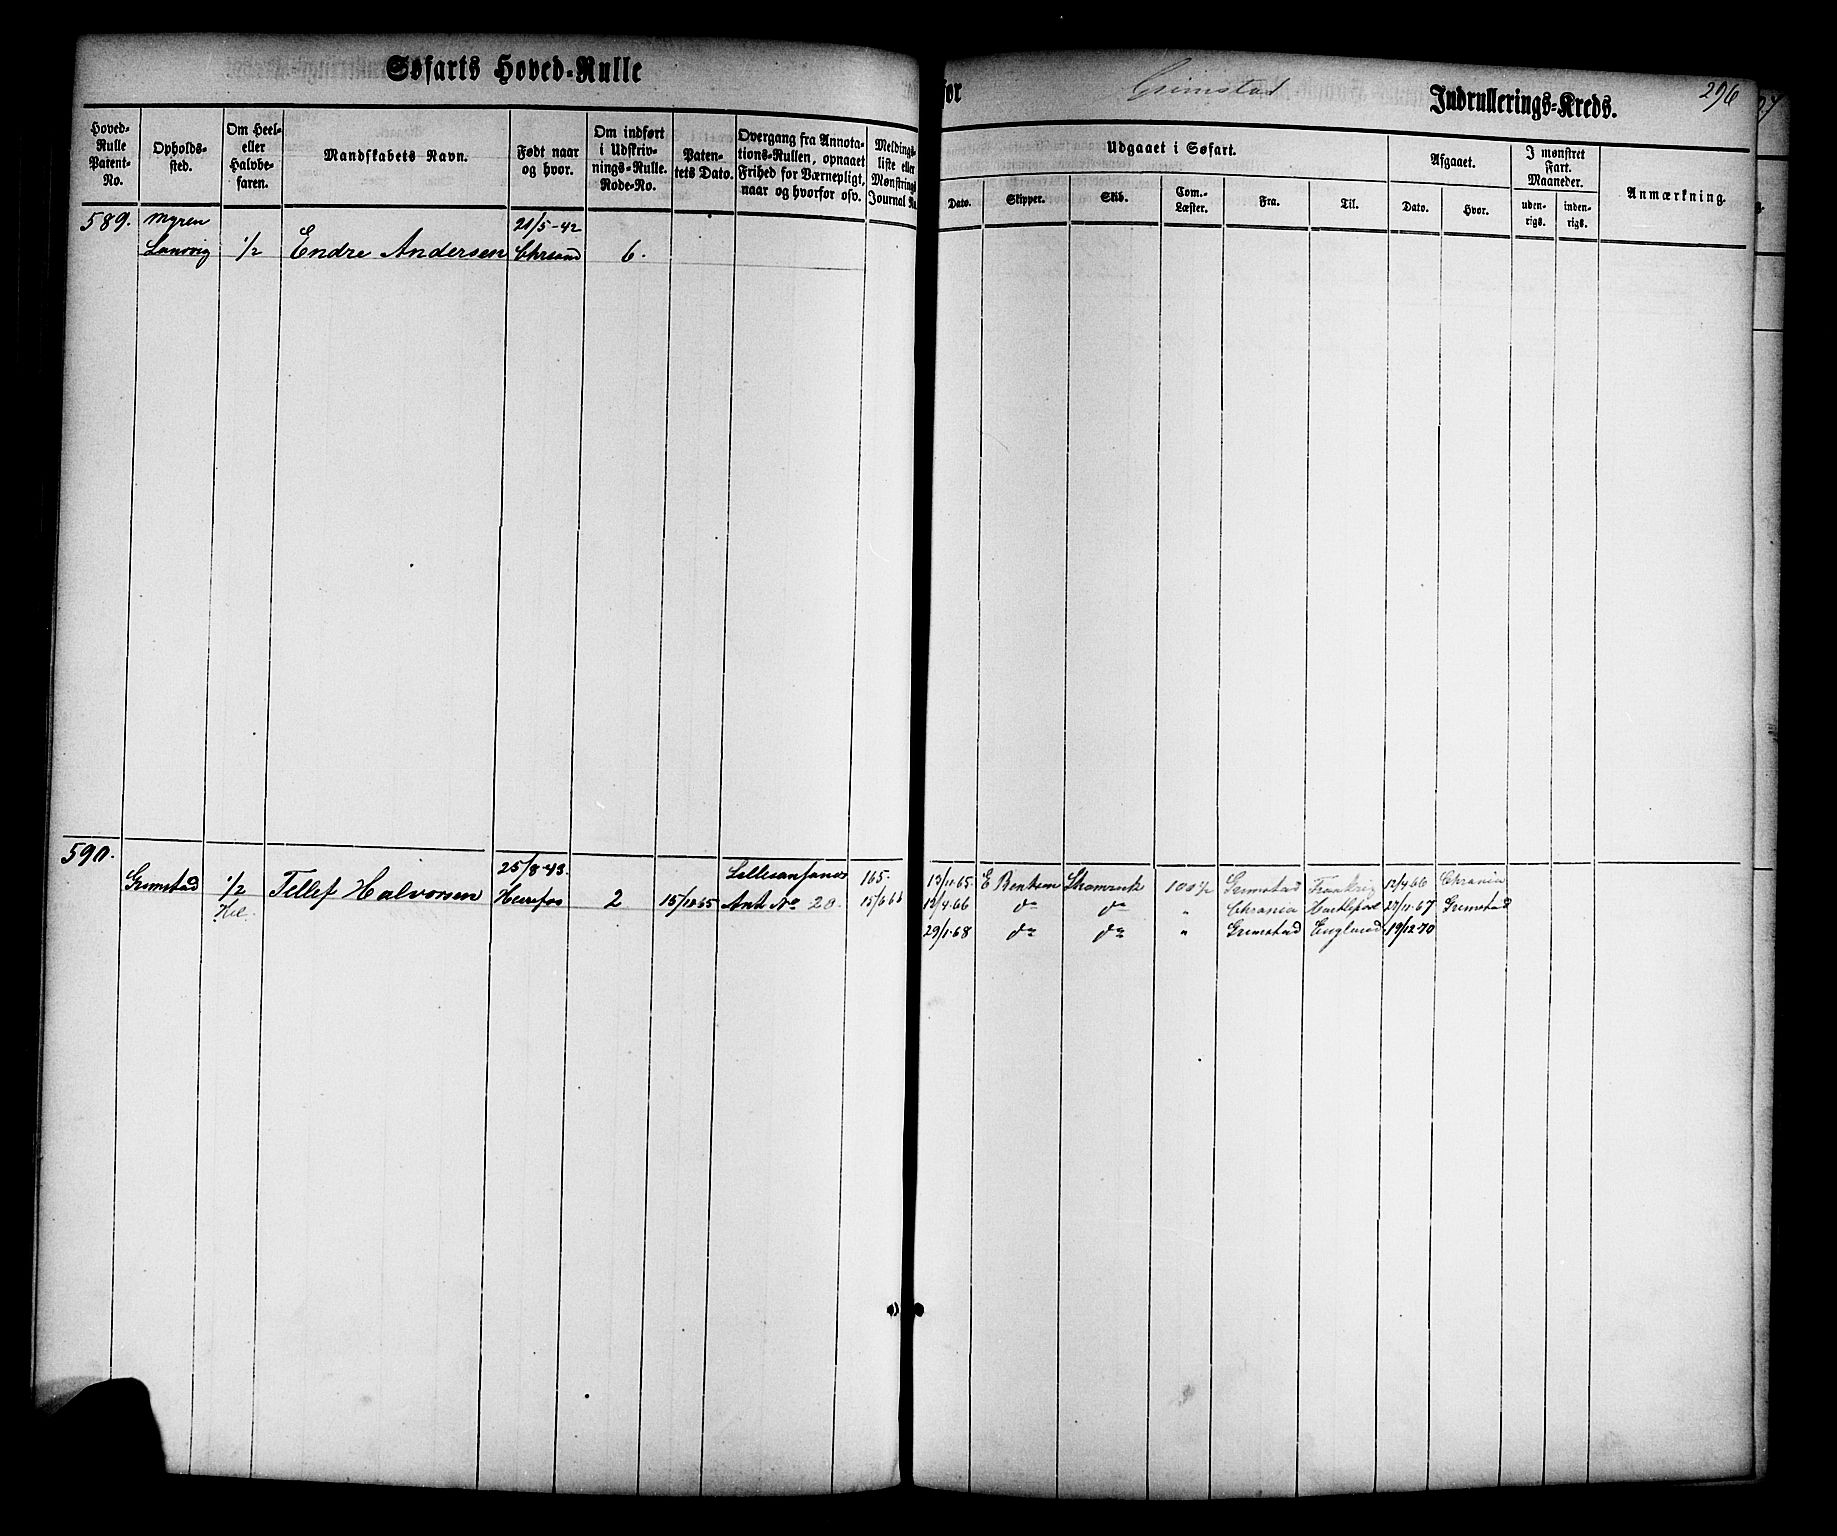 Søfarts Hoved-Rulle
for Grimstad Indrullerings-Kreds. 296
Hoved-Rulle Patent-No.
Opholds-sted.
Om Heel- eller Halvbe-faren.
Mandskabets Navn.
Født naar og hvor.
Om indført i Udskriv-nings-Rulle. Rode-No.
Paten-tets Dato.
Overgang fra Annota-tions-Rullen, opnaaet Frihed for Værnepligt, naar og hvorfor osv.
Meldings-liste eller Mønstrings Journal No.
Udgaaet i Søfart.
Dato. Skipper. Skib. Com.-Læster. Fra. Til.
Afgaaet.
Dato. Hvor.
I mønstret Fart. Maaneder.
uden-rigs. inden-rigs.
Anmærkning.
589. Myren 21/5-42
Landvig 1/2 Endre Andersen Chrsand 6.
590. 25/8-43. Lillesand
Grimstad 1/2 Tellef Halvorsen Heirefos 2 15/10 65 Ant No 20. 165.
Hel. 15/6 66
13/11 65. E Bentsen 100 1/2 Grimstad Frankrig 12/4 66 Chrania
12/4 66 do do " Chrania Hartlepool 27/11-67 Grimstad
29/1-68 do do " Grimstad England 19/12-70